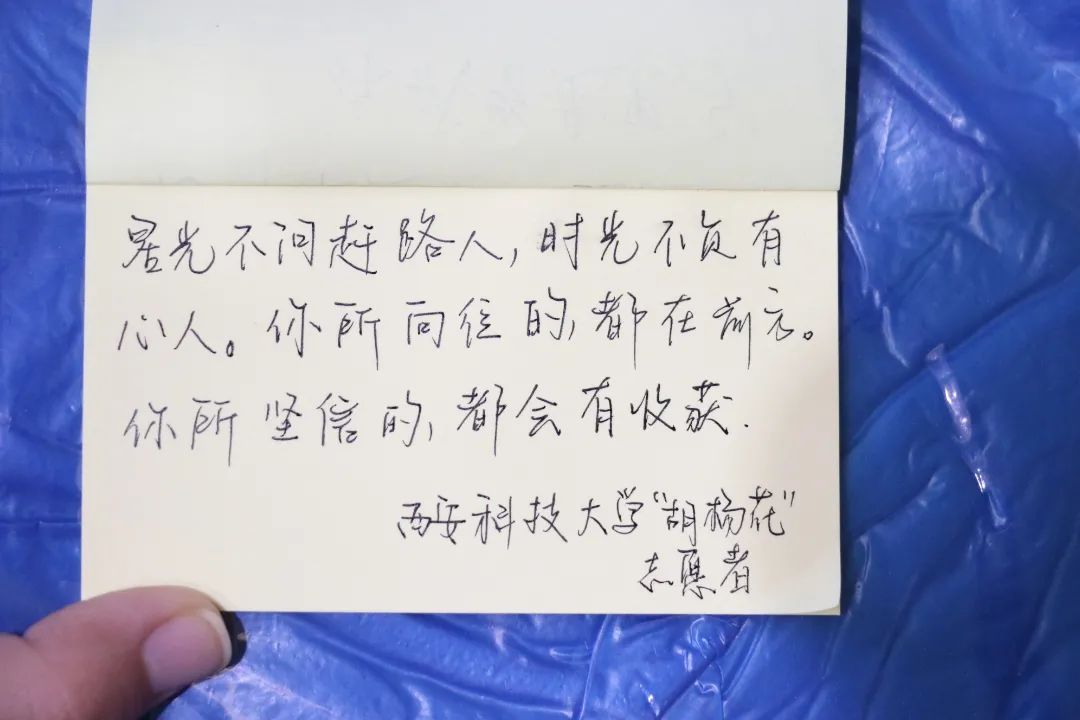 星光不问赶路人，时光不负有
心人。你所向往的，都在前方。
你所坚信的，都会有收获.
西安科技大学“胡杨花”
志愿者